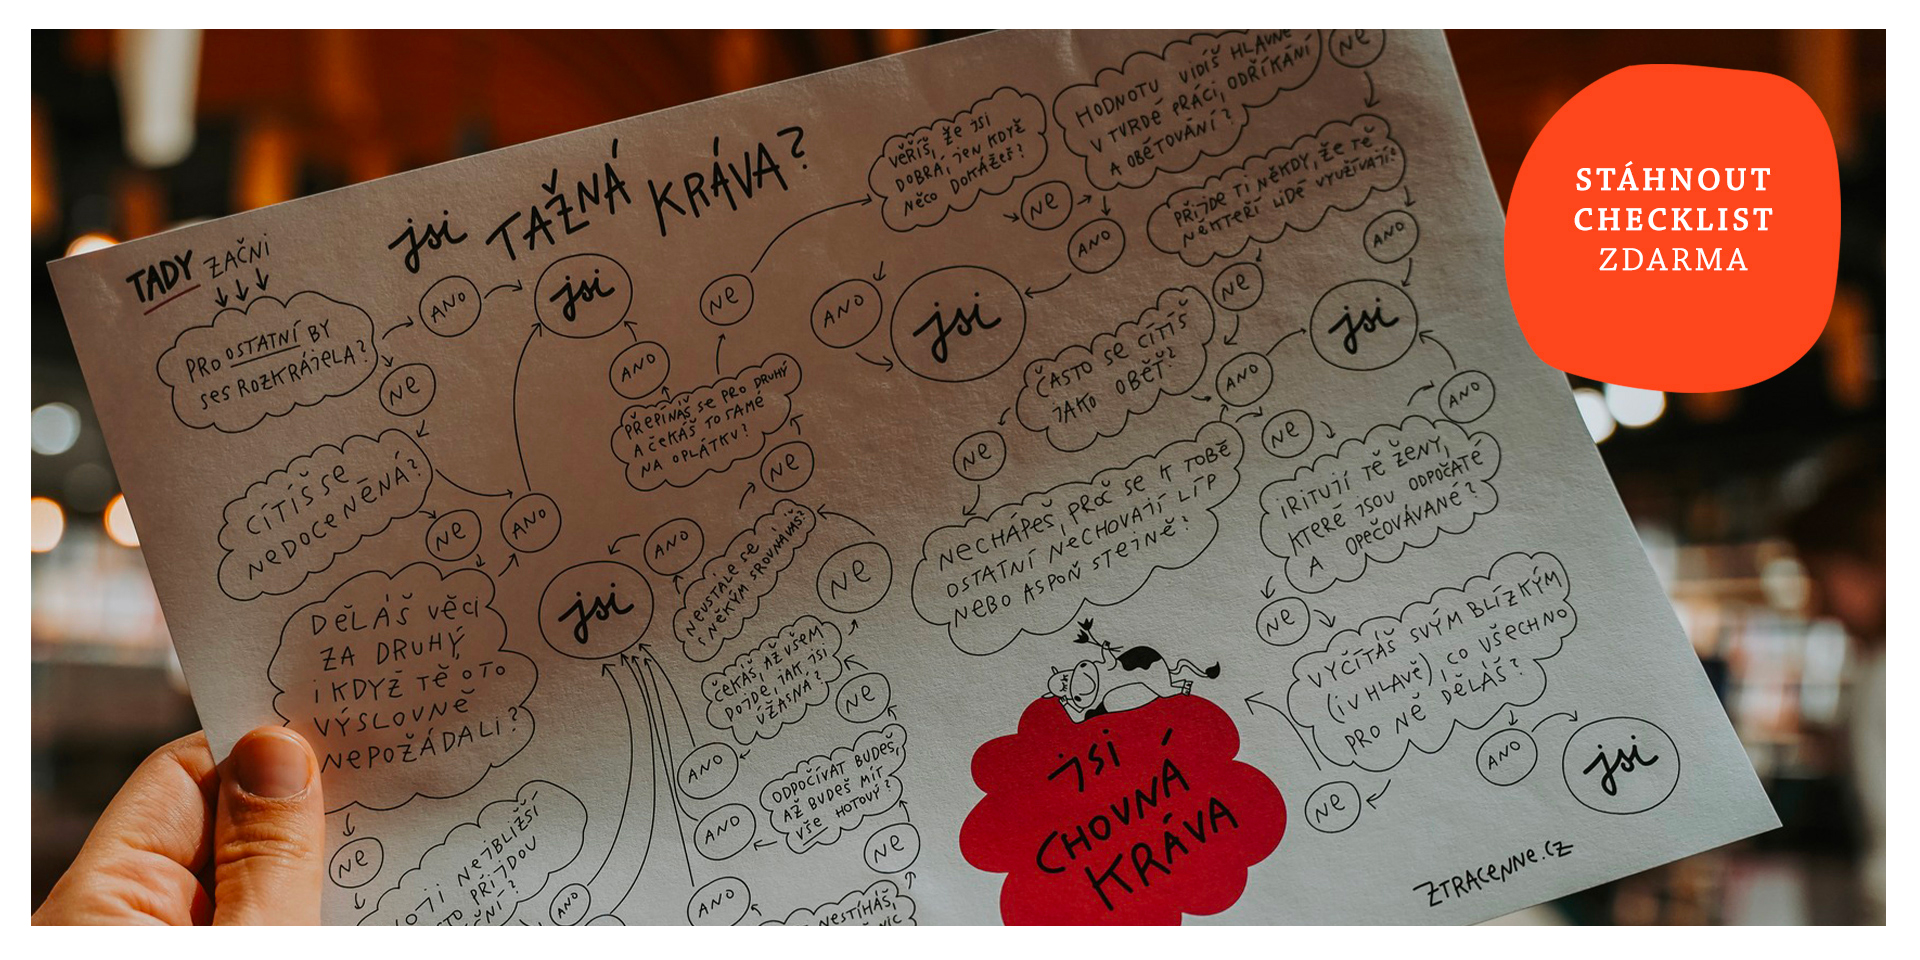 STÁHNOUT
CHECKLIST
ZDARMA
jsi TAŽNÁ KRÁVA?
TADY ZAČNI
PRO OSTATNÍ BY
SES ROZKRÁJELA?
ANO
jsi
NE
CÍTÍŠ SE
NEDOCENĚNÁ?
NE
ANO
DĚLÁŠ VĚCI
ZA DRUHÝ,
I KDYŽ TĚ O TO
VÝSLOVNĚ
NEPOŽÁDALI?
NE
NEJBLIŽŠÍ
PŘIJDOU
ANO
jsi
ANO
NEUSTÁLE SE
S NĚKÝM SROVNÁVÁŠ?
NE
ANO
PŘEPÍNÁŠ SE PRO DRUHÝ
A ČEKÁŠ TO SAMÉ
NA OPLÁTKU?
NE
NE
ČEKÁŠ, AŽ VŠEM
DOJDE, JAK JSI
ÚŽASNÁ?
NE
ANO
ODPOČÍVAT BUDEŠ,
AŽ BUDEŠ MÍT
VŠE HOTOVÝ?
ANO
NE
ANO
NESTÍHÁŠ,
NIC
VĚŘÍŠ, ŽE JSI
DOBRÁ, JEN KDYŽ
NĚCO DOKÁŽEŠ?
NE
ANO
jsi
HODNOTU VIDÍŠ HLAVNĚ
V TVRDÉ PRÁCI, ODŘÍKÁNÍ
A OBĚTOVÁNÍ?
NE
ANO
PŘIJDE TI NĚKDY, ŽE TĚ
NĚKTEŘÍ LIDÉ VYUŽÍVAJÍ?
ANO
NE
jsi
ČASTO SE CÍTÍŠ
JAKO OBĚŤ?
ANO
NE
NECHÁPEŠ, PROČ SE K TOBĚ
OSTATNÍ NECHOVAJÍ LÍP
NEBO ASPOŇ STEJNĚ?
NE
ANO
IRITUJÍ TĚ ŽENY,
KTERÉ JSOU ODPOČATÉ
A OPEČOVÁVANÉ?
NE
VYČÍTÁŠ SVÝM BLÍZKÝM
(I V HLAVĚ), CO VŠECHNO
PRO NĚ DĚLÁŠ?
ANO
jsi
NE
jsi
CHOVNÁ
KRÁVA
ZTRACENNE.CZ